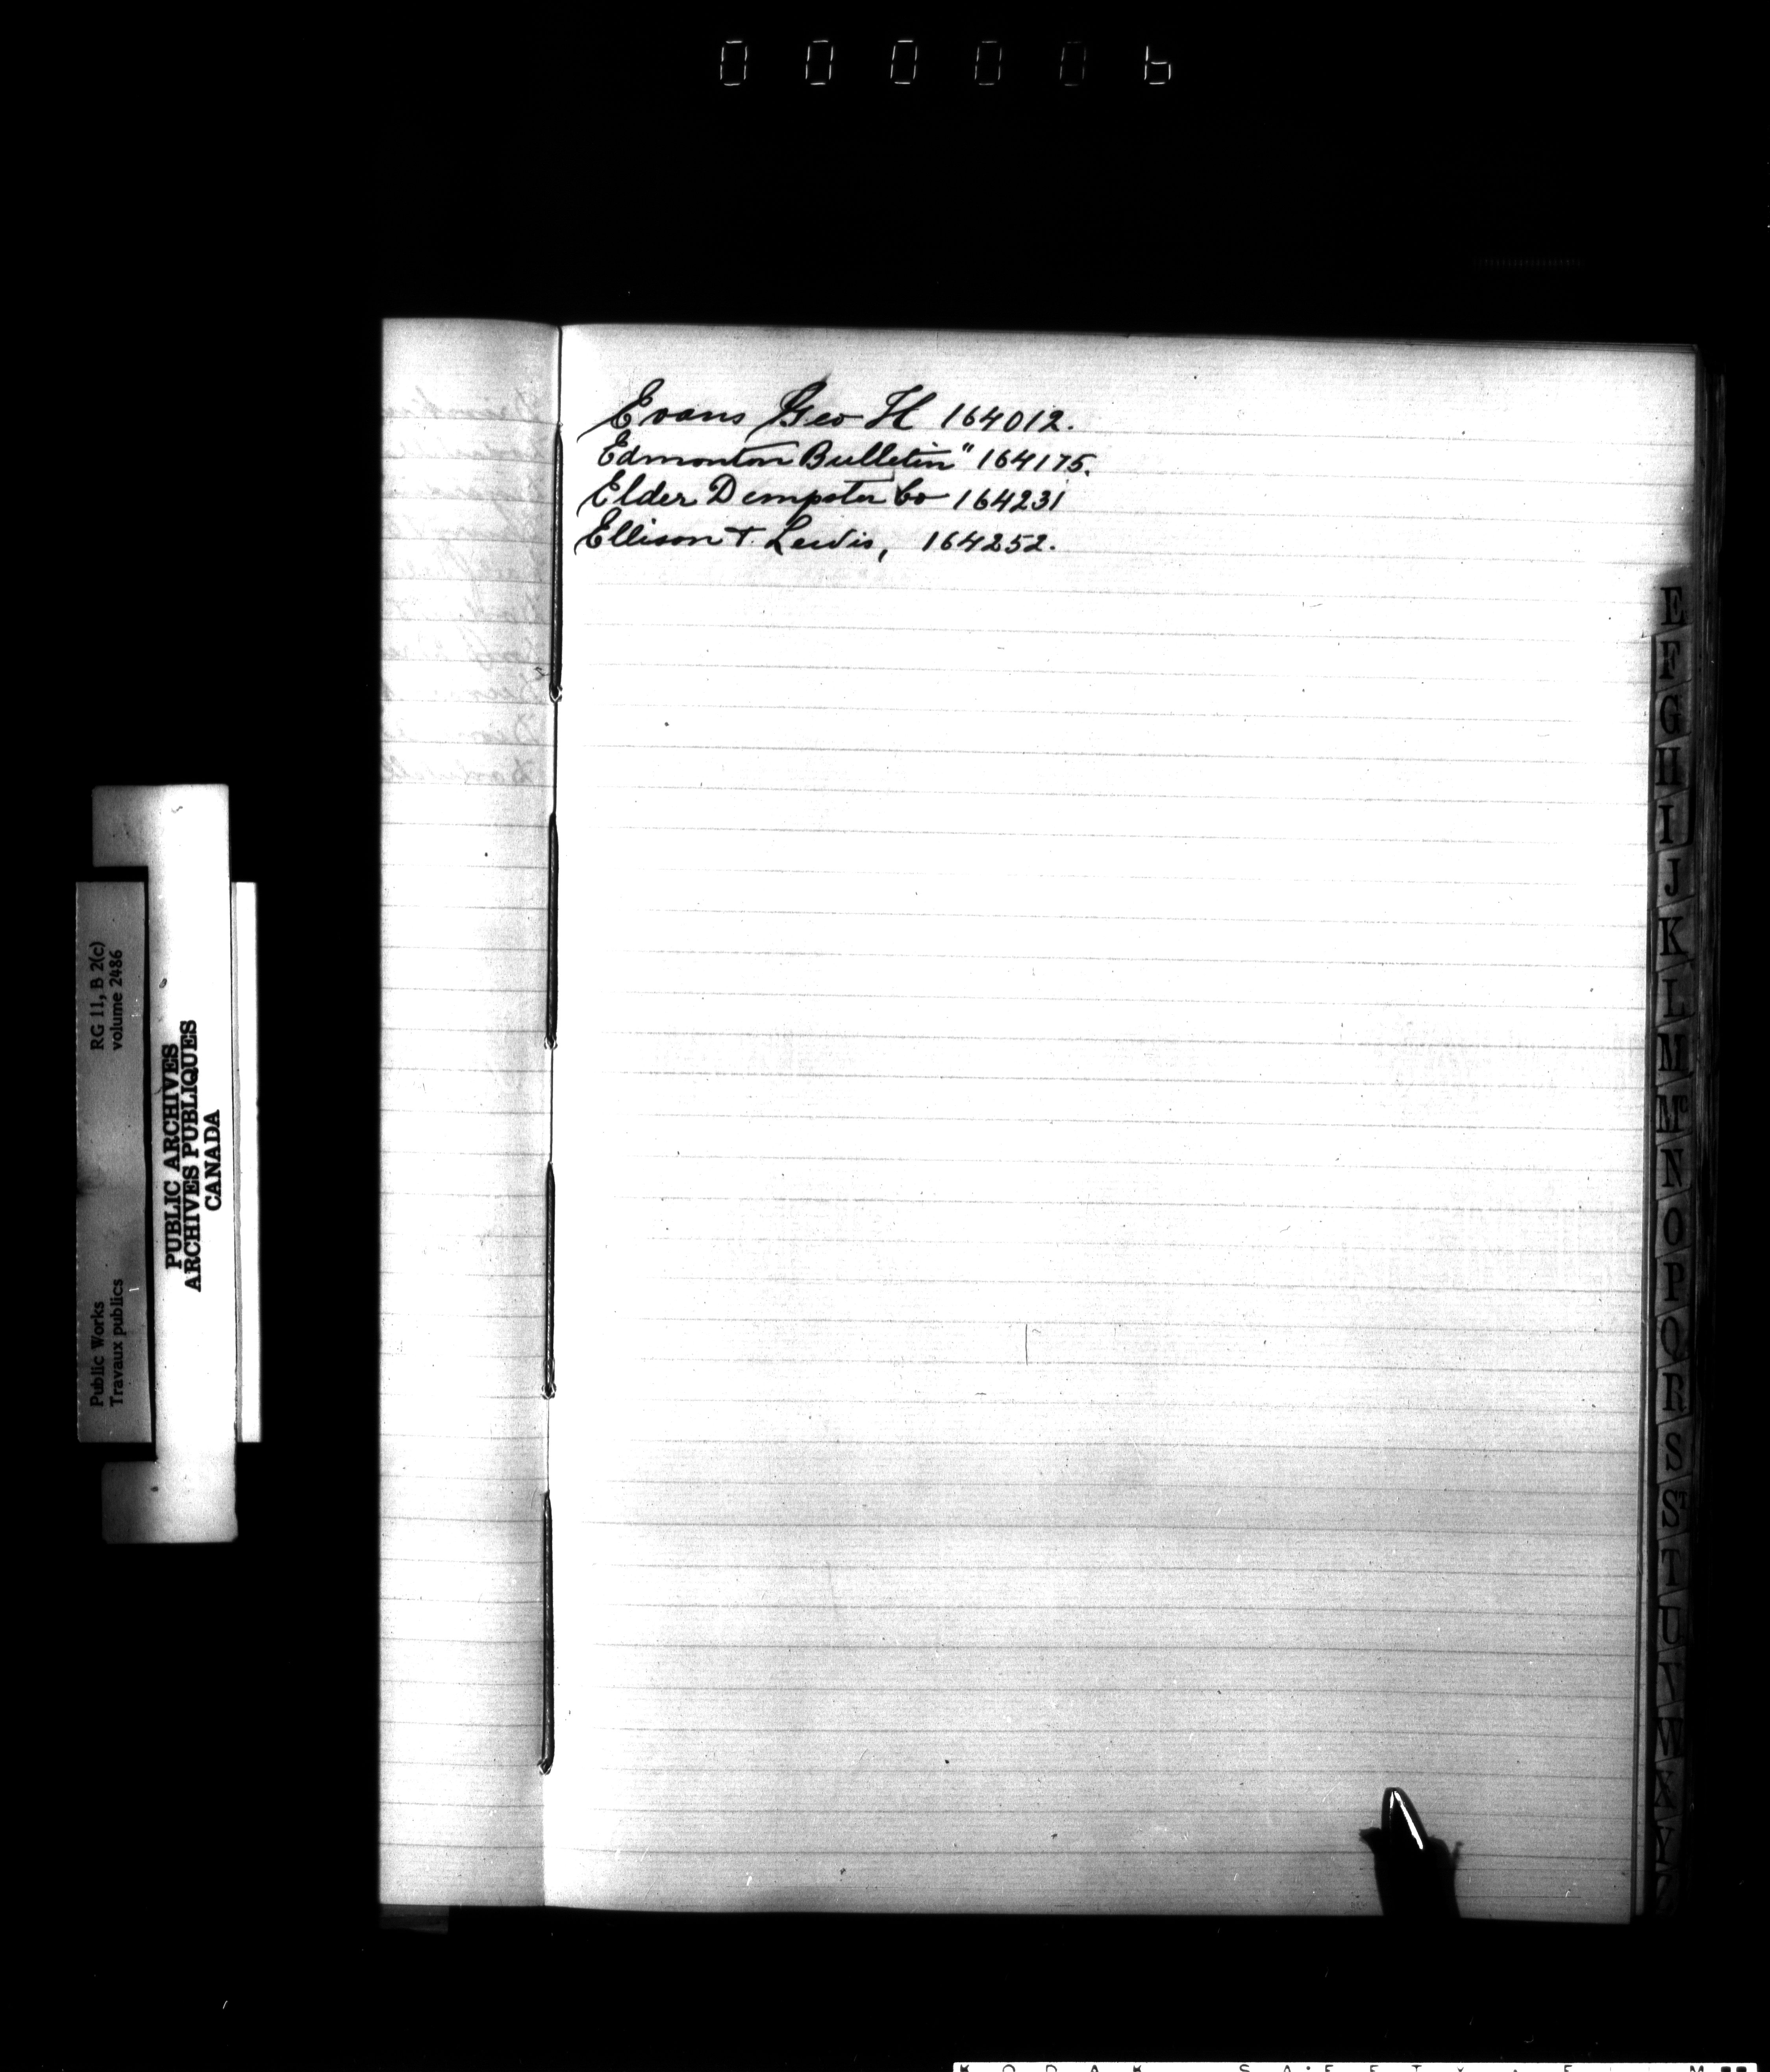 000006
Evans Geo H 164012.
Edmonton Bulletin" 164175.
Elder Dempster Co 164231
Ellison & Lewis, 164252.
E
F
G
H
I
J
K
L
M
Mc
N
O
P
Q
R
S
ST
T
U
V
W
X
Y
Public Works
Travaux publics
RG 11, B 2(c)
volume 2486
PUBLIC ARCHIVES
ARCHIVES PUBLIQUES
CANADA
KODAK SAFETY